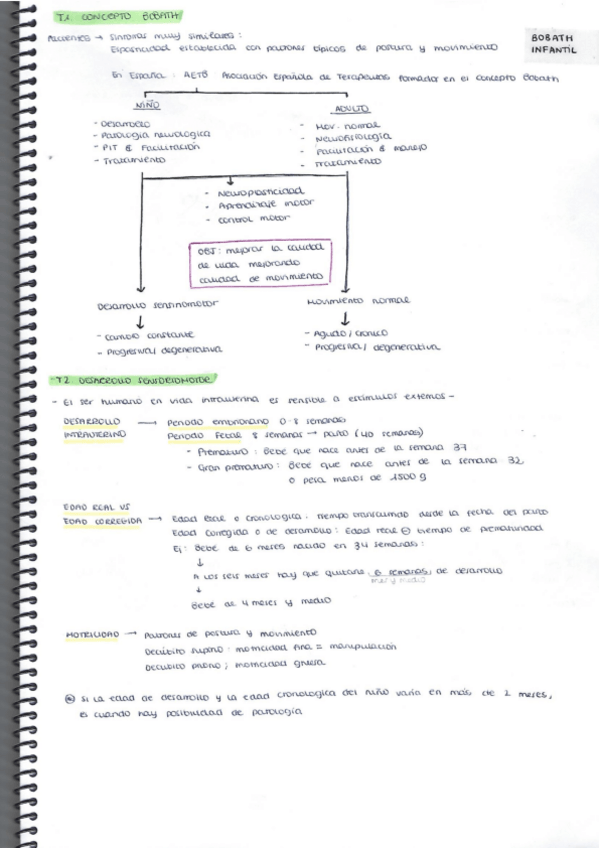 T.1 CONCEPTO BOBATH
BOBATH INFANTIL
Pacientes → Síntomas muy similares:
Espasticidad establecida con patrones típicos de postura y movimiento
En España: AETB Asociación Española de Terapeutas formados en el Concepto Bobath
NIÑO
- Desarrollo
- Patología neurológica
- PIT & Facilitación
- Tratamiento
ADULTO
- Mov. normal
- Neurofisiología
- Facilitación & manejo
- Tratamiento
- Neuroplasticidad
- Aprendizaje motor
- Control motor
OBJ: mejorar la calidad
de vida mejorando
calidad de movimiento
Desarrollo sensiomotor
↓
- Cambio constante
- Progresiva/degenerativa
Movimiento normal
↓
- Agudo/crónico
- Progresiva/degenerativa
T.2 DESARROLLO SENSORIOMOTOR
- El ser humano en vida intrauterina es sensible a estímulos externos -
DESARROLLO INTRAUTERINO → Periodo embrionario 0-8 semanas
Periodo Fetal 8 semanas → parto (40 semanas)
- Prematuro: Bebé que nace antes de la semana 37
- Gran prematuro: Bebé que nace antes de la semana 32
o pesa menos de 1500 g
EDAD REAL VS
EDAD CORREGIDA → Edad Real o cronológica: tiempo transcurrido desde la fecha del parto
Edad corregida o de desarrollo: Edad real ⊖ tiempo de prematuridad
Ej: Bebé de 6 meses nacido en 34 semanas:
↓
A los seis meses hay que quitarle 6 semanas de desarrollo
mes y medio
↓
Bebé de 4 meses y medio
MOTILIDAD → Patrones de postura y movimiento
Decúbito supino: motricidad fina = manipulación
Decúbito prono; motricidad gruesa
⊛ Si la edad de desarrollo y la edad cronológica del niño varía en más de 2 meses,
es cuando hay posibilidad de patología